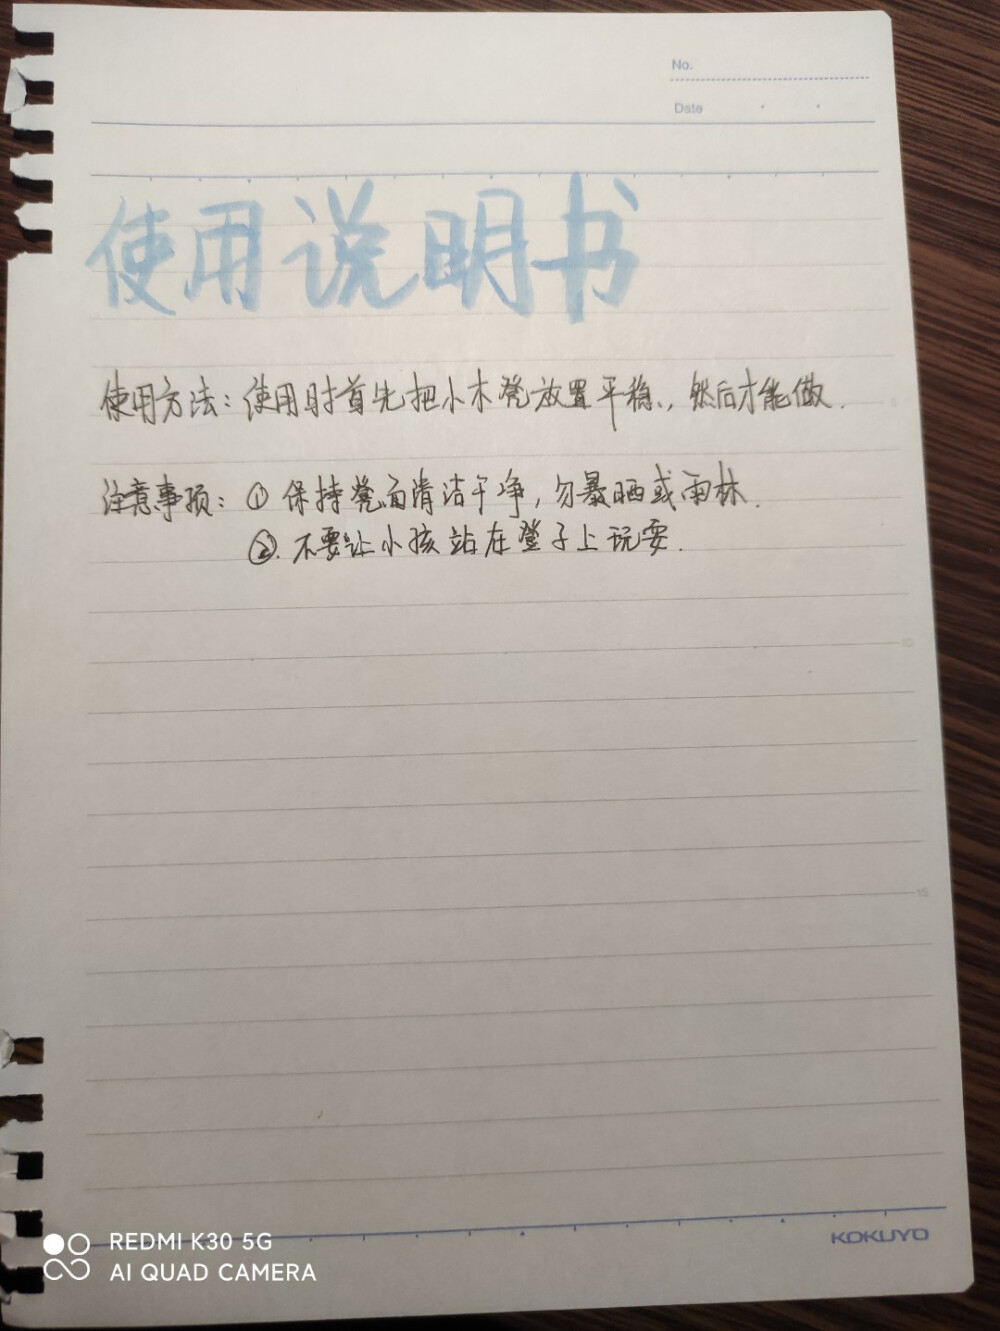 No.
Date
使用说明书
使用方法：使用时首先把小木凳放置平稳，然后才能做.
注意事项：① 保持凳面清洁干净，勿暴晒或雨林.
②. 不要让小孩站在凳子上玩耍.
5
10
15
KOKUYO
REDMI K30 5G
AI QUAD CAMERA